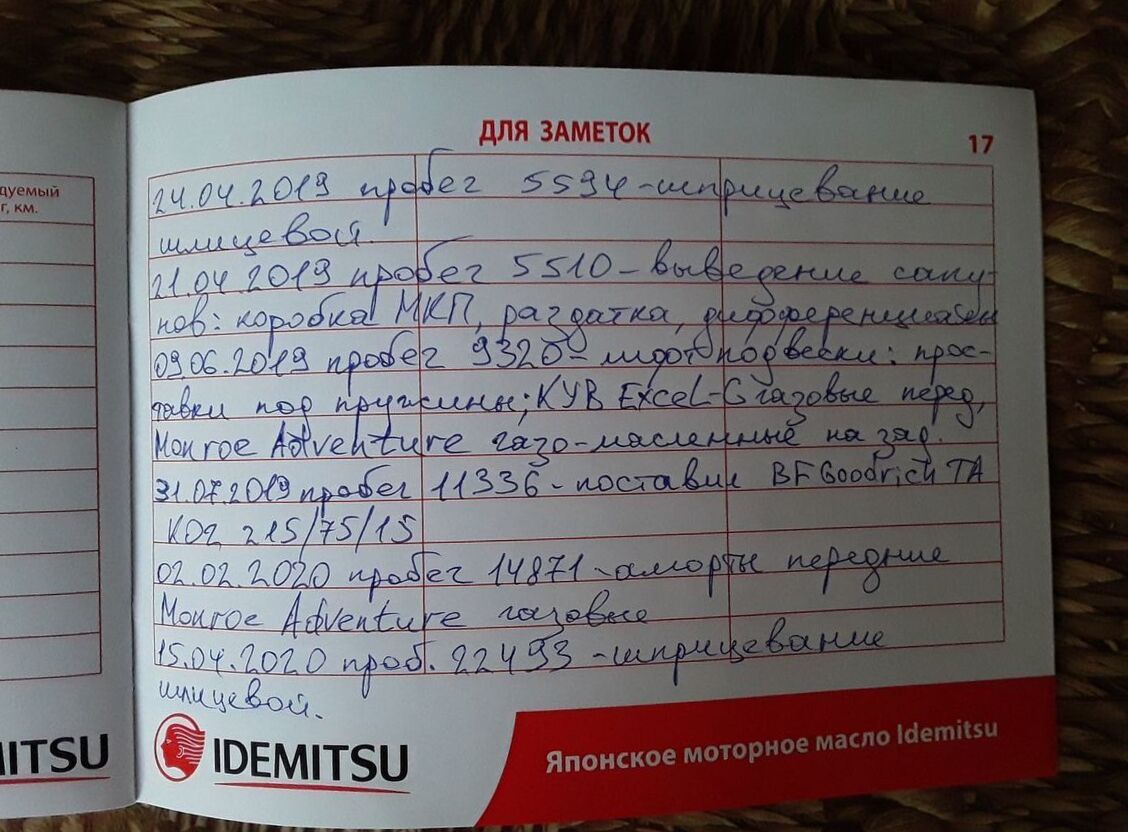 дуемый
г, км.
ДЛЯ ЗАМЕТОК
17
24.04.2019 пробег 5594-шприцевание
шлицевой.
21.04 2019 пробег 5510-выведение сапу-
нов: коробка МКП, раздатка, дифференциалы
09.06.2019 пробег 9320- лифт подвески: прос-
тавки под пружины; KYB Excel-G газовые перед,
Monroe Adventure газо-масленные на зад.
31.07.2019 пробег 11336-поставил BFGoodrich TA
KO2 215/75/15
02.02.2020 пробег 14871-аморты передние
Monroe Adventure газовые
15.04.2020 проб. 22493-шприцевание
шлицевой.
MITSU
IDEMITSU
Японское моторное масло Idemitsu